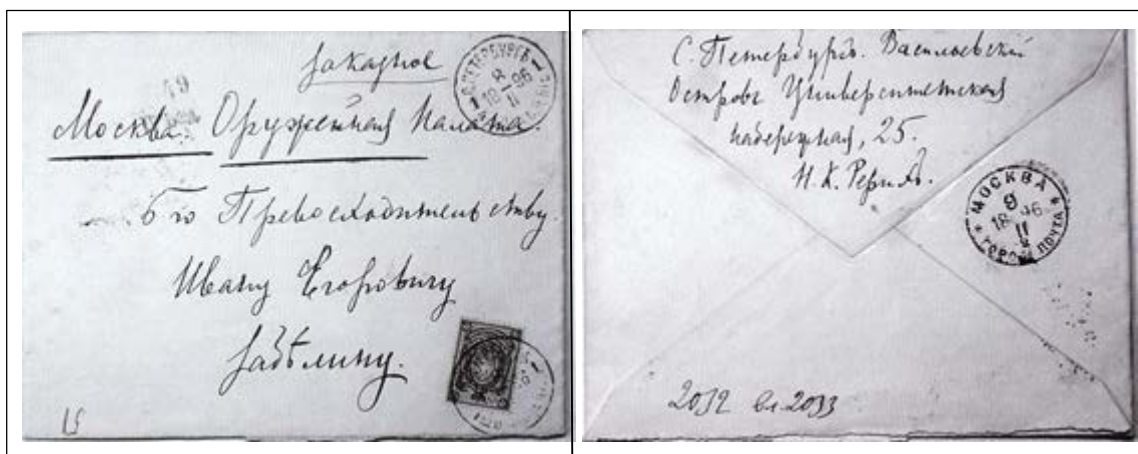 заказное
Москва. Оружейная Палата.
Его Превосходительству
Ивану Егоровичу
Забѣлину.
С. Петербургъ. Васильевскій
Островъ Университетская
набережная, 25.
Н. К. Рерихъ.
МОСКВА
9
18 96
II
ГОРОД. ПОЧТА
2032 вл. 2033